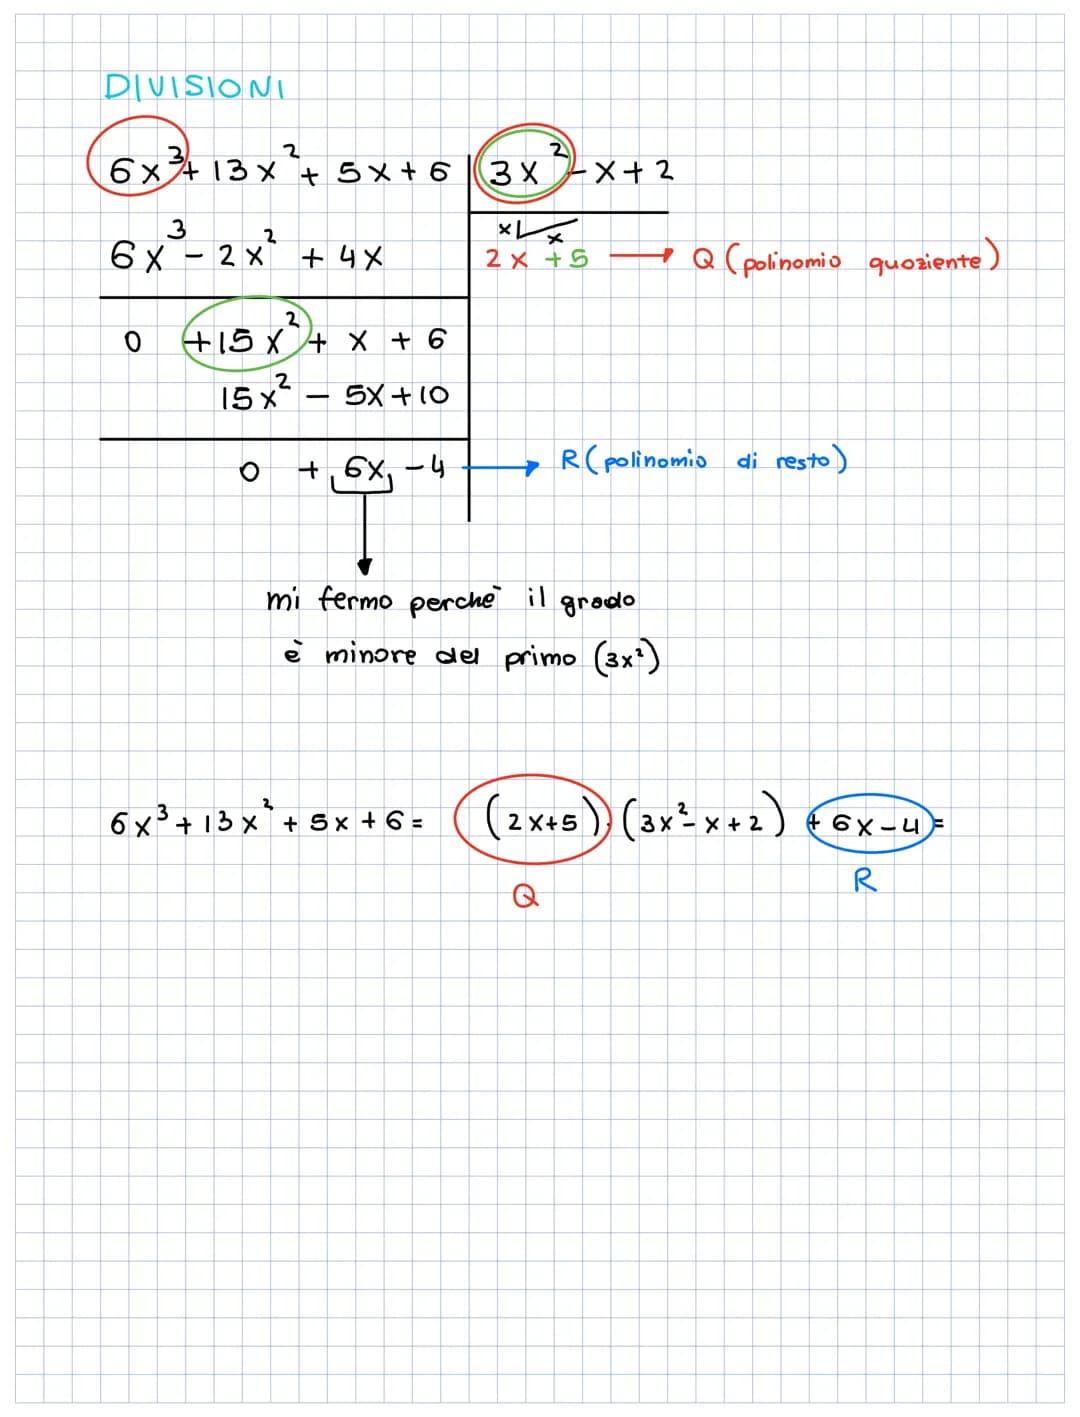 DIVISIONI
6x³ + 13x² + 5x + 6 | 3x² - x + 2
6x³ - 2x² + 4x
2x + 5 → Q (polinomio quoziente)
0 + 15x² + x + 6
15x² - 5x + 10
0 + 6x - 4 → R (polinomio di resto)
mi fermo perchè il grado
è minore del primo (3x²)
6x³ + 13x² + 5x + 6 = (2x+5) · (3x² - x + 2) + 6x - 4 =
Q
R